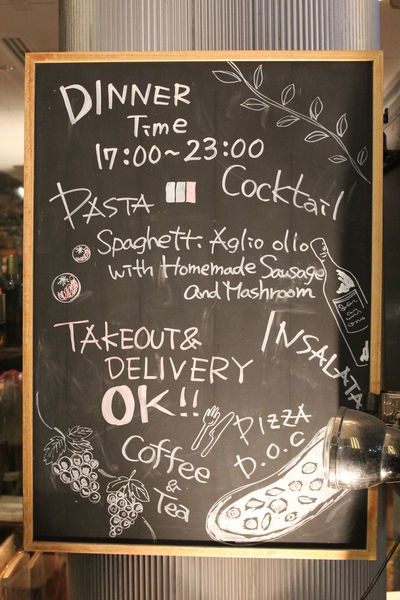 DINNER
Time
17:00~23:00
Cocktail
PASTA
Spaghetti Aglio olio
with Homemade Sausage
and Mashroom
TAKEOUT&
DELIVERY
OK!!
INSALATA
PIZZA
D.O.C
Coffee
&
Tea